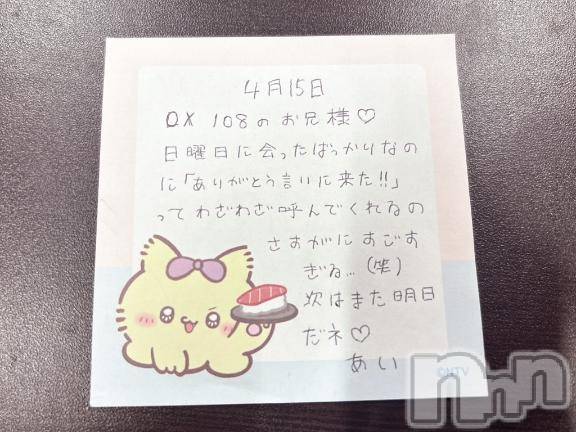 4月15日
QX 108のお兄様♡
日曜日に会ったばっかりなの
に「ありがとう言いに来た!!」
ってわざわざ呼んでくれるの
さすがにすごす
ぎる…(笑)
次はまた明日
だネ♡
あい
©NTV
nnn